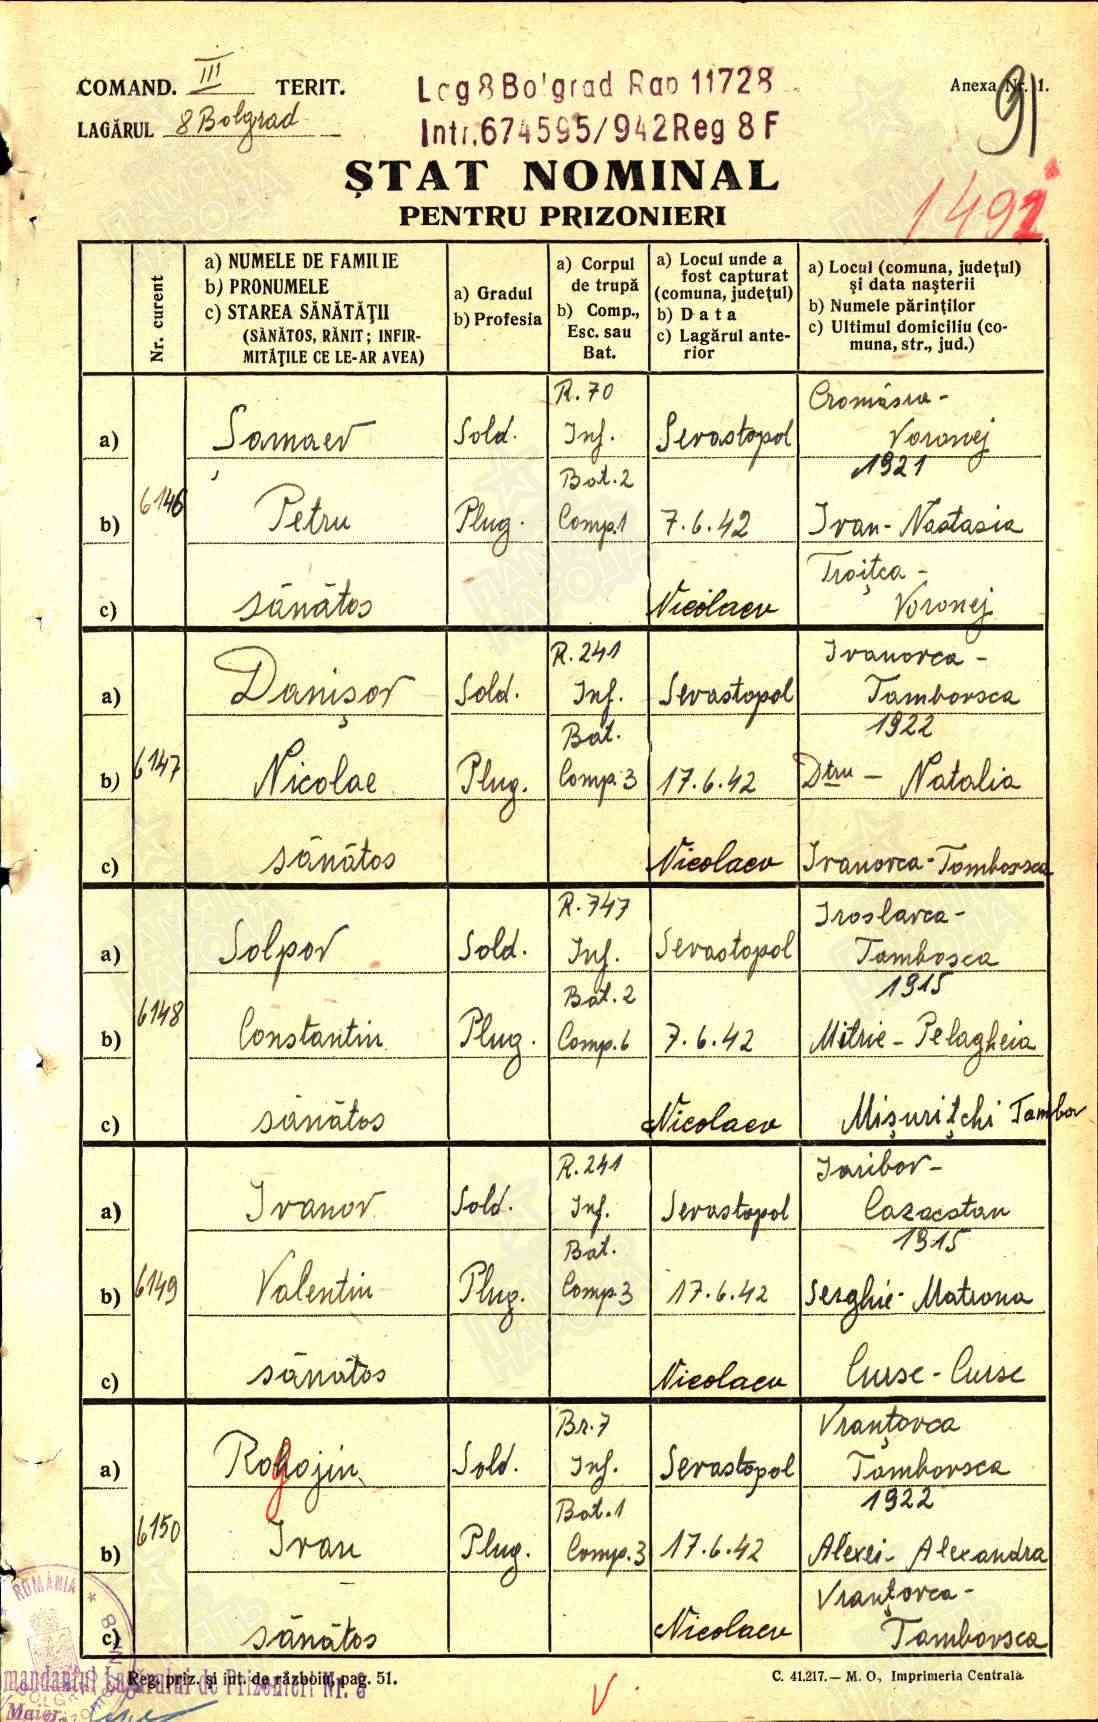 COMAND. III TERIT.
LAGĂRUL 8 Bolgrad
Lag 8 Bolgrad Rap 11728
Intr. 674595/942 Reg 8 F
Anexa Nr. 1.
91
1492
ȘTAT NOMINAL
PENTRU PRIZONIERI
Nr. curent
a) NUMELE DE FAMILIE
b) PRONUMELE
c) STAREA SĂNĂTĂȚII
(SĂNĂTOS, RĂNIT; INFIR-
MITĂȚILE CE LE-AR AVEA)
a) Gradul
b) Profesia
a) Corpul
de trupă
b) Comp.,
Esc. sau
Bat.
a) Locul unde a
fost capturat
(comuna, județul)
b) Data
c) Lagărul ante-
rior
a) Locul (comuna, județul)
și data nașterii
b) Numele părinților
c) Ultimul domiciliu (co-
muna, str., jud.)
6146
a) Șamaev Sold. R. 70 Inf. Sevastopol
Voronej
1921
b) Petru Plug. Bat. 2 Comp. 1 7.6.42 Ivan - Nastasia
c) sănătos Nicolaev Troițca -
Voronej
6147
a) Danișov Sold. R. 241 Inf. Sevastopol Ivanovca -
Tambovsca
1922
b) Nicolae Plug. Bat. Comp. 3 17.6.42 Dtru - Natalia
c) sănătos Nicolaev Ivanovca - Tambovsca
6148
a) Solpov Sold. R. 747 Inf. Sevastopol Iroslavca -
Tambosca
1915
b) Constantin Plug. Bat. 2 Comp. 6 7.6.42 Mitrie - Pelagheia
c) sănătos Nicolaev Mișurițchi Tambov
6149
a) Ivanov Sold. R. 241 Inf. Sevastopol Iaribov -
Cazacstan
1915
b) Valentin Plug. Bat. Comp. 3 17.6.42 Serghie - Matrona
c) sănătos Nicolaev
6150
a) Rogojin Sold. Br. 7 Inf. Sevastopol Vranțovca
Tambovsca
1922
b) Ivan Plug. Bat. 1 Comp. 3 17.6.42 Alexei - Alexandra
c) sănătos Nicolaev Vranțovca -
Tambovsca
Reg. priz. și int. de război, pag. 51.
C. 41.217. — M. O., Imprimeria Centrală
ROMÂNIA
Comandantul Lagărului de Prizonieri Nr. 8
Maior
ПАМЯТЬ
НАРОДА